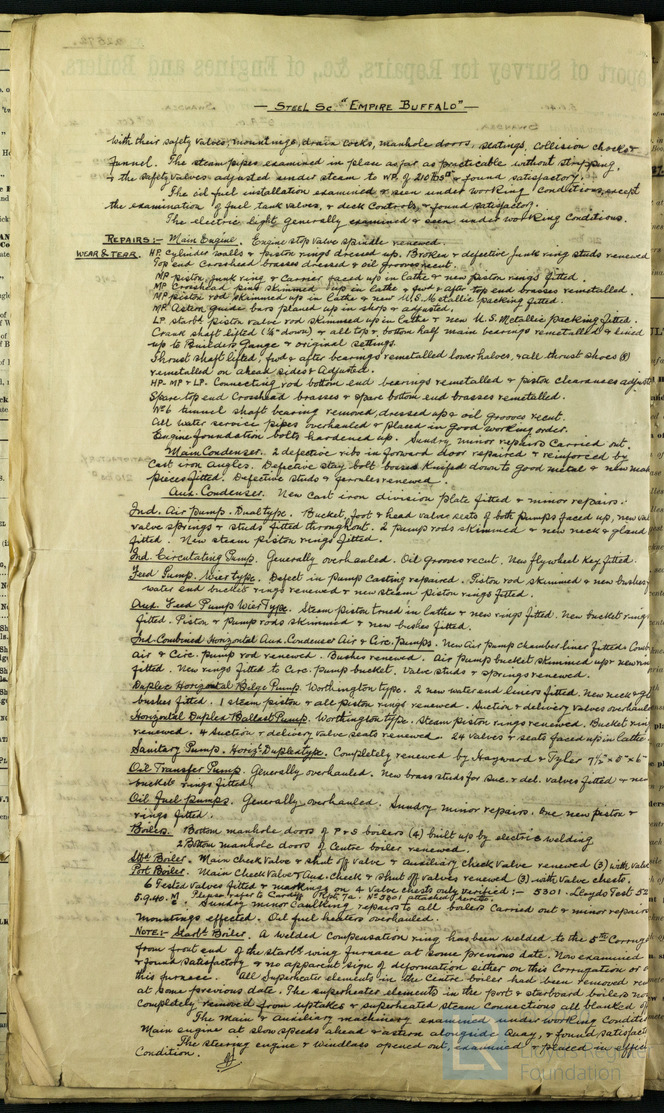 — STEEL SC "EMPIRE BUFFALO" —
with their safety valves, mountings, drain cocks, manhole doors, seatings, collision chocks &
funnel. The steam pipes examined in place as far as practicable without stripping,
& the safety valves adjusted under steam to WP. of 210 & found satisfactory.
The oil fuel installation examined & seen under working conditions, except
the examination of fuel tank valves, & deck controls, & found satisfactory.
The electric light generally examined & seen under working conditions.
REPAIRS:- Main Engine. Engine stop valve spindle renewed.
WEAR & TEAR. HP. Cylinder walls & piston rings dressed up. Broken & defective junk ring studs renewed
Top end Crosshead brasses dressed & oil grooves recut.
MP piston, junk ring & Carrier faced up in lathe & new piston rings fitted.
MP Crosshead pins skimmed up in lathe & fwd & after top end brasses remetalled.
MP piston rod skimmed up in lathe & new U.S. Metallic packing fitted.
MP. Astern guide bars planed up in shop & adjusted.
LP starbd piston valve rod skimmed up in lathe & new U.S. Metallic packing fitted.
Crank shaft lifted & all top & bottom half main bearings remetalled & lined
up to Builders Gauge & original settings.
Thrust shaft lifted, fwd & after bearings remetalled lower halves, & all thrust shoes (8)
remetalled on ahead sides & adjusted.
HP. MP & LP. Connecting rod bottom end bearings remetalled & piston clearances adjust
Spare top end Crosshead brasses & spare bottom end brasses remetalled.
No 6 tunnel shaft bearing removed, dressed up & oil grooves recut.
All water service pipes overhauled & placed in good working order.
Engine foundation bolts hardened up. Sundry minor repairs carried out.
Main Condenser. 2 defective ribs in forward door repaired & reinforced by
cast iron angles. Defective stay bolt bosses knifed down to good metal & new
pieces fitted. Defective studs & ferrules renewed.
Aux. Condenser. New cast iron division plate fitted & minor repairs.
Ind. Air pump. Dual type. Bucket, foot & head valve seats of both pumps faced up, new
valve springs & studs fitted throughout. 2 pump rods skimmed & new neck & gland
fitted. New steam piston rings fitted.
Ind. Circulating Pump. Generally overhauled. Oil grooves recut. New flywheel key fitted.
Feed Pump. Wier type. Defect in pump casting repaired. Piston rod skimmed & new bushes
water end bucket rings renewed & new steam piston rings fitted.
Aux. Feed Pump Wier Type. Steam piston tured in lathe & new rings fitted. New bucket rings
fitted. Piston & pump rods skimmed & new bushes fitted.
Ind. Combined Horizontal Aux. Condenser Air & Circ. pumps. New Air pump chamber liner fitted. Comb
air & Circ. pump rod renewed. Bushes renewed. Air pump bucket skimmed up & new
fitted. New rings fitted to Circ. pump bucket. Valve studs & springs renewed.
Duplex Horizontal Bilge Pump. Worthington type. 2 new water end liners fitted. New neck &
bushes fitted. 1 steam piston & all piston rings renewed. Suction & delivery valves overhaul
Horizontal Duplex Ballast Pump. Worthington type. Steam piston rings renewed. Bucket ring
renewed. 4 suction & delivery valve seats renewed. 24 valves & seats faced up in lathe
Sanitary Pump. Horizl Duplex type. Completely renewed by Hayward & Tyler 7½" × 6" × 6"
Oil Transfer Pump. Generally overhauled. New brass studs for suc. & del. valves fitted & new
bucket rings fitted.
Oil Fuel Pumps. Generally overhauled. Sundry minor repairs. One new piston &
rings fitted.
Boilers. Bottom manhole doors of P & S boilers (4) built up by electric welding
2 Bottom manhole doors of Centre boiler renewed.
Stbd Boiler. Main check valve & shut off valve & auxiliary check valve renewed (3) with valve
Port Boiler. Main check valve, Aux. check & shut off valves renewed (3) with valve chests.
6 Tested valves fitted & markings on 4 valve chests only verified:- 5301. Lloyds Test
5.9.40. Please refer to Cardiff No 5301 attached hereto.
Sundry minor caulking repairs to all boilers carried out & minor repairs
mountings effected. Oil fuel heaters overhauled.
NOTE:- Starbd Boiler. A welded compensation ring has been welded to the 5th Corrug
from front end of the starbd wing furnace at some previous date. Now examined
& found satisfactory, & no apparent sign of deformation either on this Corrugation or
this furnace. All Superheater elements in the Centre boiler had been removed
at some previous date. The superheater elements in the port & starboard boilers now
completely removed from uptakes & superheated steam connections all blanked
The Main & Auxiliary machinery examined under working conditi
Main engine at slow speeds ahead & astern alongside Quay, & found satisfact
The steering engine & windlass opened out, examined & placed in effici
Condition.
Foundation